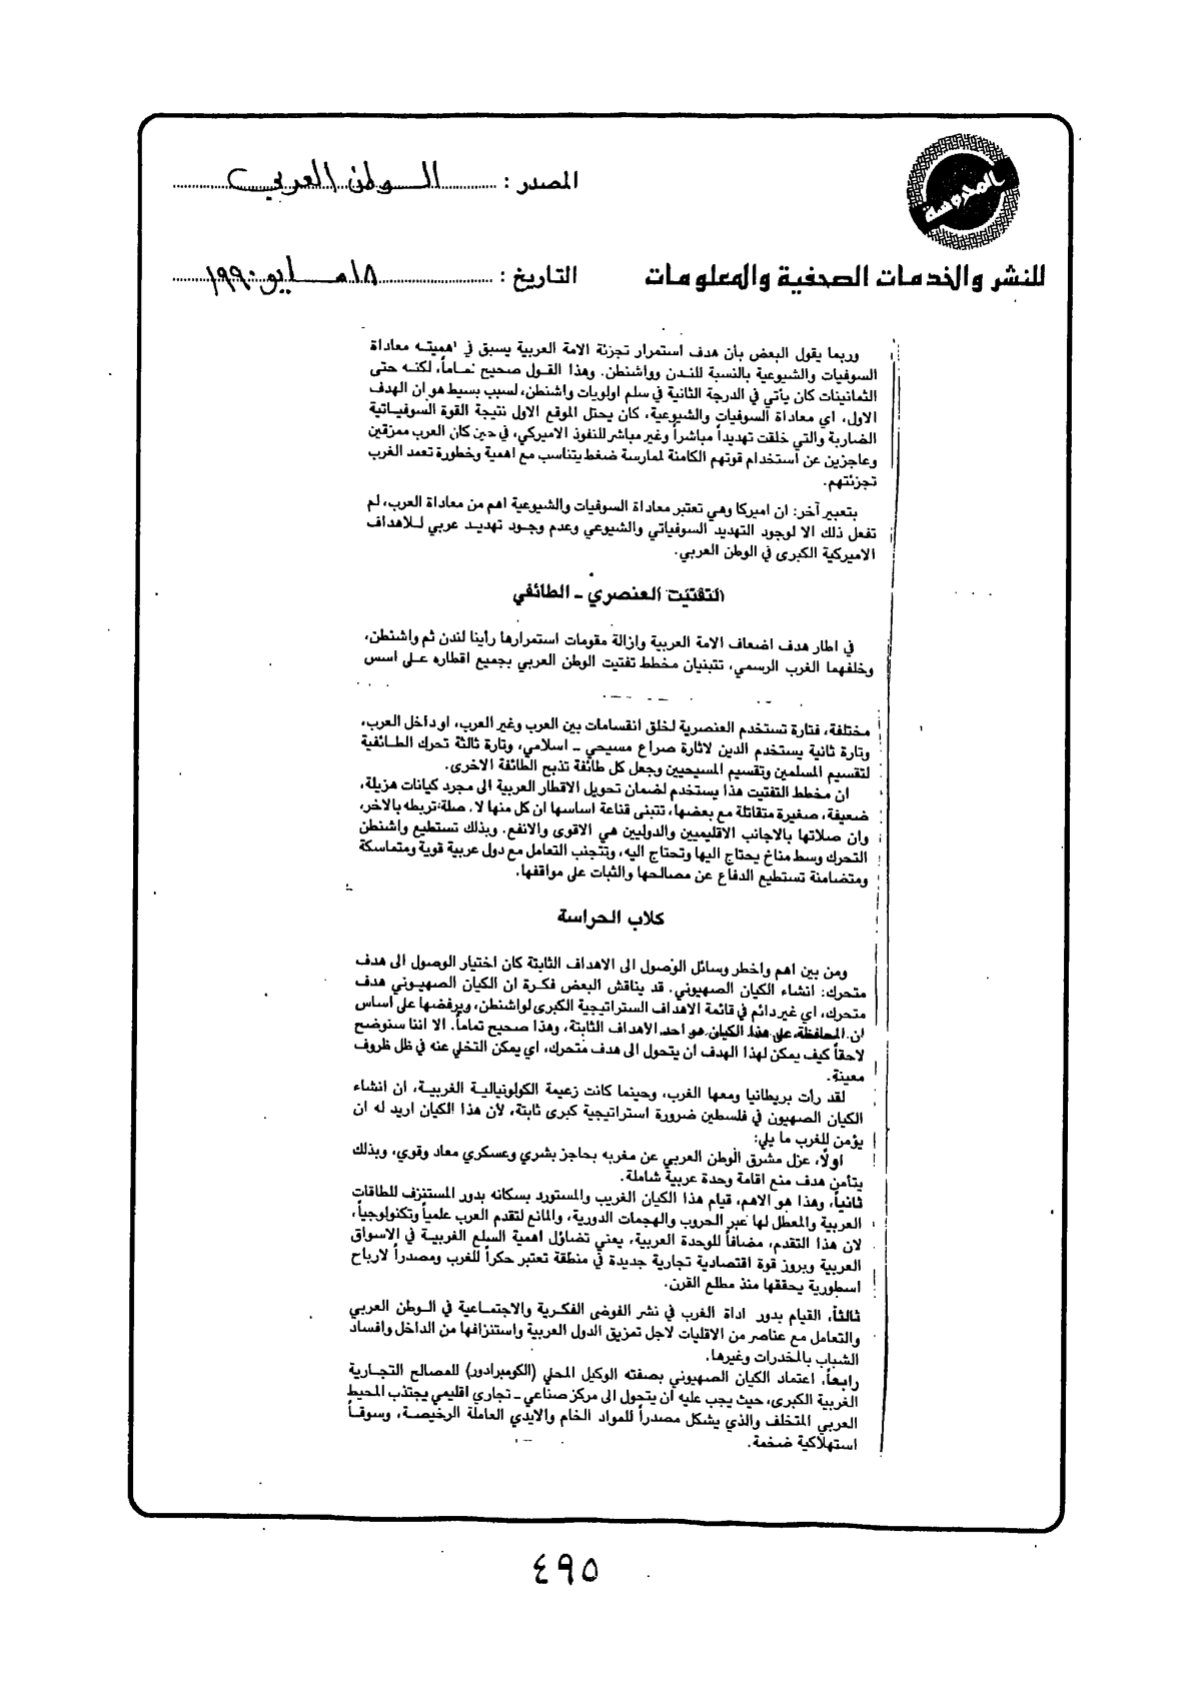 المحروسة
المصدر : الوطن العربي
للنشر والخدمات الصحفية والمعلومات
التاريخ : ١٨ مايو ١٩٩٠
وربما يقول البعض بأن هدف استمرار تجزئة الامة العربية يسبق في اهميته معاداة
السوفيات والشيوعية بالنسبة للندن وواشنطن. وهذا القول صحيح تماماً، لكنه حتى
الثمانينات كان يأتي في الدرجة الثانية في سلم اولويات واشنطن، لسبب بسيط هو ان الهدف
الاول، اي معاداة السوفيات والشيوعية، كان يحتل الموقع الاول نتيجة القوة السوفياتية
الضاربة والتي خلقت تهديداً مباشراً وغير مباشر للنفوذ الاميركي، في حين كان العرب ممزقين
وعاجزين عن استخدام قوتهم الكامنة لممارسة ضغط يتناسب مع اهمية وخطورة تعمد الغرب
تجزئتهم.
بتعبير آخر: ان اميركا وهي تعتبر معاداة السوفيات والشيوعية اهم من معاداة العرب، لم
تفعل ذلك الا لوجود التهديد السوفياتي والشيوعي وعدم وجود تهديد عربي للاهداف
الاميركية الكبرى في الوطن العربي.
التفتيت العنصري ــ الطائفي
في اطار هدف اضعاف الامة العربية وازالة مقومات استمرارها رأينا لندن ثم واشنطن،
وخلفهما الغرب الرسمي، تتبنيان مخطط تفتيت الوطن العربي بجميع اقطاره على اسس
مختلفة، فتارة تستخدم العنصرية لخلق انقسامات بين العرب وغير العرب، او داخل العرب،
وتارة ثانية يستخدم الدين لاثارة صراع مسيحي ــ اسلامي، وتارة ثالثة تحرك الطائفية
لتقسيم المسلمين وتقسيم المسيحيين وجعل كل طائفة تذبح الطائفة الاخرى.
ان مخطط التفتيت هذا يستخدم لضمان تحويل الاقطار العربية الى مجرد كيانات هزيلة،
ضعيفة، صغيرة متقاتلة مع بعضها، تتبنى قناعة اساسها ان كل منها لا صلة تربطه بالاخر،
وان صلاتها بالاجانب الاقليميين والدوليين هي الاقوى والانفع. وبذلك تستطيع واشنطن
التحرك وسط مناخ يحتاج اليها وتحتاج اليه، وتتجنب التعامل مع دول عربية قوية ومتماسكة
ومتضامنة تستطيع الدفاع عن مصالحها والثبات على مواقفها.
كلاب الحراسة
ومن بين اهم واخطر وسائل الوصول الى الاهداف الثابتة كان اختيار الوصول الى هدف
متحرك: انشاء الكيان الصهيوني. قد يناقش البعض فكرة ان الكيان الصهيوني هدف
متحرك، اي غير دائم في قائمة الاهداف الستراتيجية الكبرى لواشنطن، ويرفضها على اساس
ان المحافظة على هذا الكيان هو احد الأهداف الثابتة، وهذا صحيح تماماً. الا اننا سنوضح
لاحقاً كيف يمكن لهذا الهدف ان يتحول الى هدف متحرك، اي يمكن التخلي عنه في ظل ظروف
معينة.
لقد رأت بريطانيا ومعها الغرب، وحينما كانت زعيمة الكولونيالية الغربية، ان انشاء
الكيان الصهيون في فلسطين ضرورة استراتيجية كبرى ثابتة، لأن هذا الكيان اريد له ان
يؤمن للغرب ما يلي:
اولًا، عزل مشرق الوطن العربي عن مغربه بحاجز بشري وعسكري معاد وقوي، وبذلك
يتأمن هدف منع اقامة وحدة عربية شاملة.
ثانياً، وهذا هو الاهم، قيام هذا الكيان الغريب والمستورد بسكانه بدور المستنزف للطاقات
العربية والمعطل لها عبر الحروب والهجمات الدورية، والمانع لتقدم العرب علمياً وتكنولوجياً،
لان هذا التقدم، مضافاً للوحدة العربية، يعني تضاؤل اهمية السلع الغربية في الاسواق
العربية وبروز قوة اقتصادية تجارية جديدة في منطقة تعتبر حكراً للغرب ومصدراً لارباح
اسطورية يحققها منذ مطلع القرن.
ثالثاً، القيام بدور اداة الغرب في نشر الفوضى الفكرية والاجتماعية في الوطن العربي
والتعامل مع عناصر من الاقليات لاجل تمزيق الدول العربية واستنزافها من الداخل وافساد
الشباب بالمخدرات وغيرها.
رابعاً، اعتماد الكيان الصهيوني بصفته الوكيل المحلي (الكومبرادور) للمصالح التجارية
الغربية الكبرى، حيث يجب عليه ان يتحول الى مركز صناعي ــ تجاري اقليمي يجتذب المحيط
العربي المتخلف والذي يشكل مصدراً للمواد الخام والايدي العاملة الرخيصة، وسوقاً
استهلاكية ضخمة.
٤٩٥